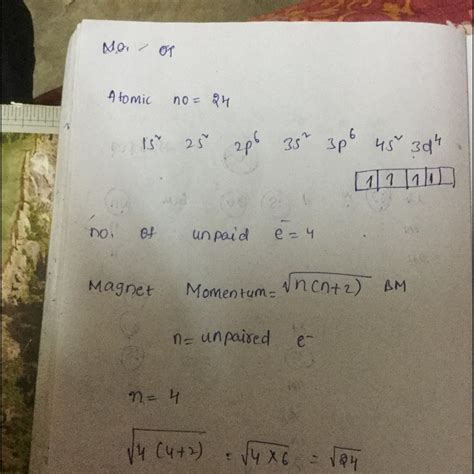 No. of
Atomic no = 24
1s² 2s² 2p⁶ 3s² 3p⁶ 4s² 3d⁴
1 1 1 1
no. of unpaid e⁻ = 4
Magnet Momentum = √n(n+2) BM
n = unpaired e⁻
n = 4
√4(4+2) = √4×6 = √24